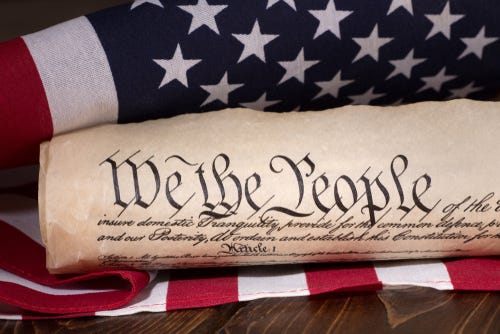 We the People of the
insure domestic Tranquility, provide for the common defence,
and our Posterity, do ordain and establish this Constitution for
Article 1